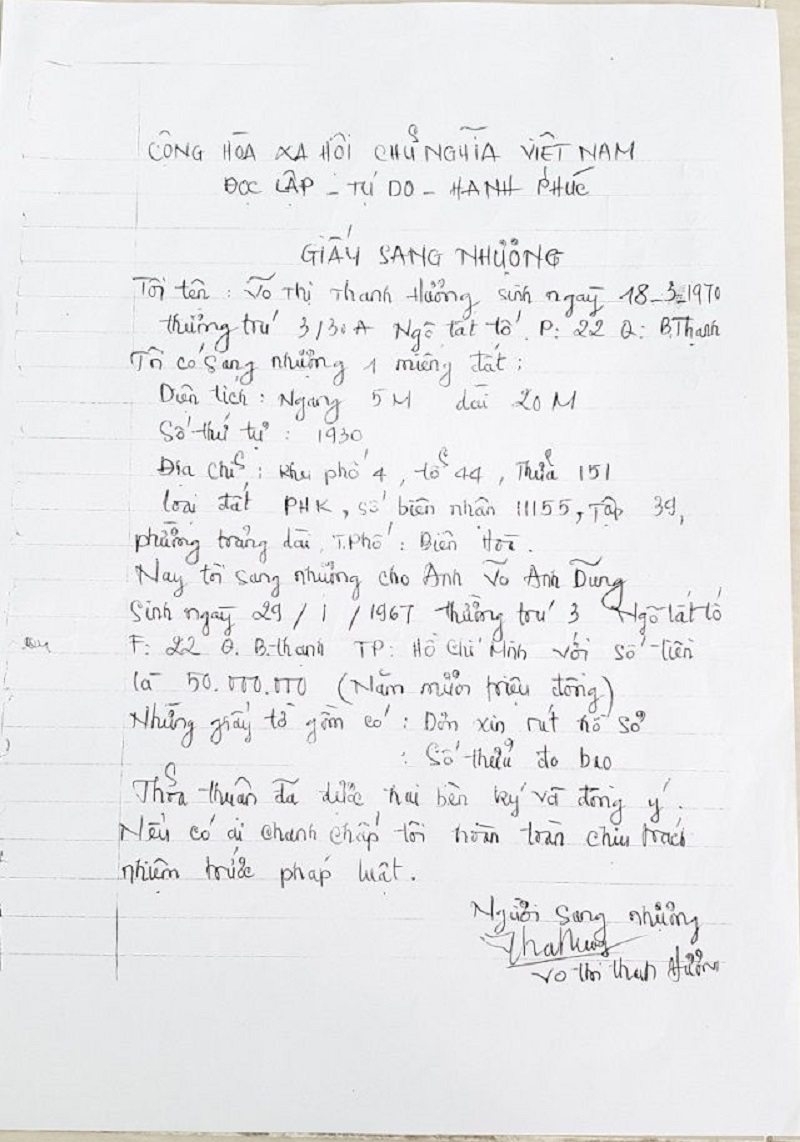 CỘNG HÒA XA HÔI CHỦ NGHĨA VIÊT NAM
ĐỌC LẬP - TỰ DO - HANH PHÚC
GIẤY SANG NHƯỢNG
Tôi tên : Võ Thị Thanh Hương sinh ngay 18-3-1970
thường trú 3/30A Ngô tất tố. P: 22 Q: B.Thạnh
Tôi có sang nhượng 1 miêng đất :
Diên tích : Ngang 5M dài 20M
Số thứ tự : 1930
Đia chỉ : khu phố 4, tổ 44, Thửa 151
loai đất PHK, số biên nhân 11155, Tập 39,
phường trảng dài, T.Phố : Biên Hòa.
Nay tôi sang nhường cho Anh Võ Anh Dũng
Sinh ngay 29/1/1967 thường trú 3 Ngô tất tố
F: 22 Q. B.thanh TP: Hồ Chí Minh với số tiền
là 50.000.000 (Năm mươi triệu đồng)
Những giấy tờ gồm có : Đơn xin rút hồ sơ
: Số thửa đo bao
Thỏa thuân đã được hai bên ký và đồng ý.
Nếu có ai chanh chấp tôi hoàn toàn chiu trách
nhiệm trước pháp luật.
Người sang nhượng
Vo thi thanh Hương